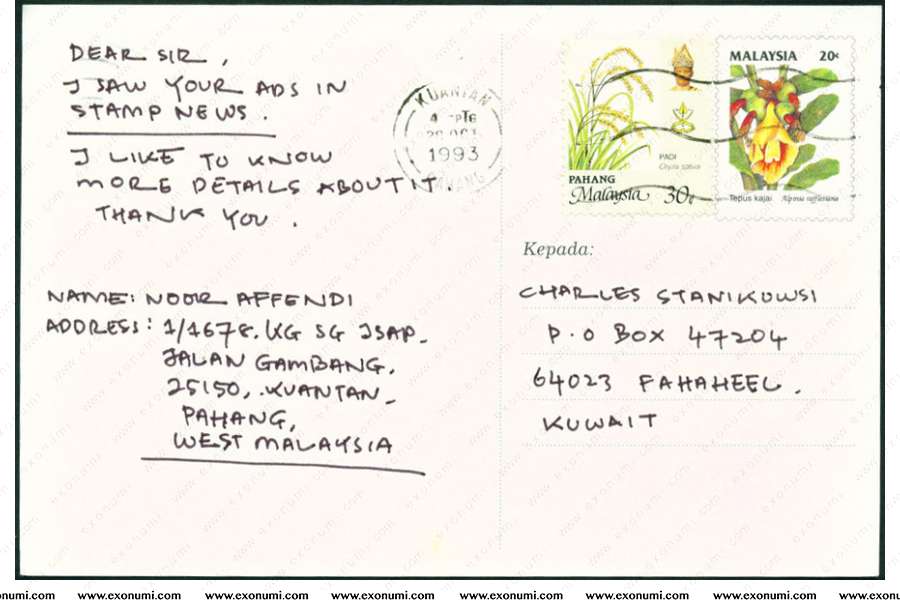 DEAR SIR,
I SAW YOUR ADS IN
STAMP NEWS.
I LIKE TO KNOW
MORE DETAILS ABOUT IT.
THANK YOU.
NAME: NOOR AFFENDI
ADDRESS: 1/1678. KG SG ISAP
JALAN GAMBANG,
25150, KUANTAN
PAHANG,
WEST MALAYSIA
KUANTAN
1993
PAHANG
PADI
Oryza sativa
PAHANG
Malaysia 30¢
MALAYSIA 20¢
Tepus kajai Alpinia rafflesiana
Kepada:
CHARLES STANIKOWSI
P.O BOX 47204
64023 FAHAHEEL.
KUWAIT
www.exonumi.com www.exonumi.com www.exonumi.com www.exonumi.com www.exonumi.com www.exonumi.com